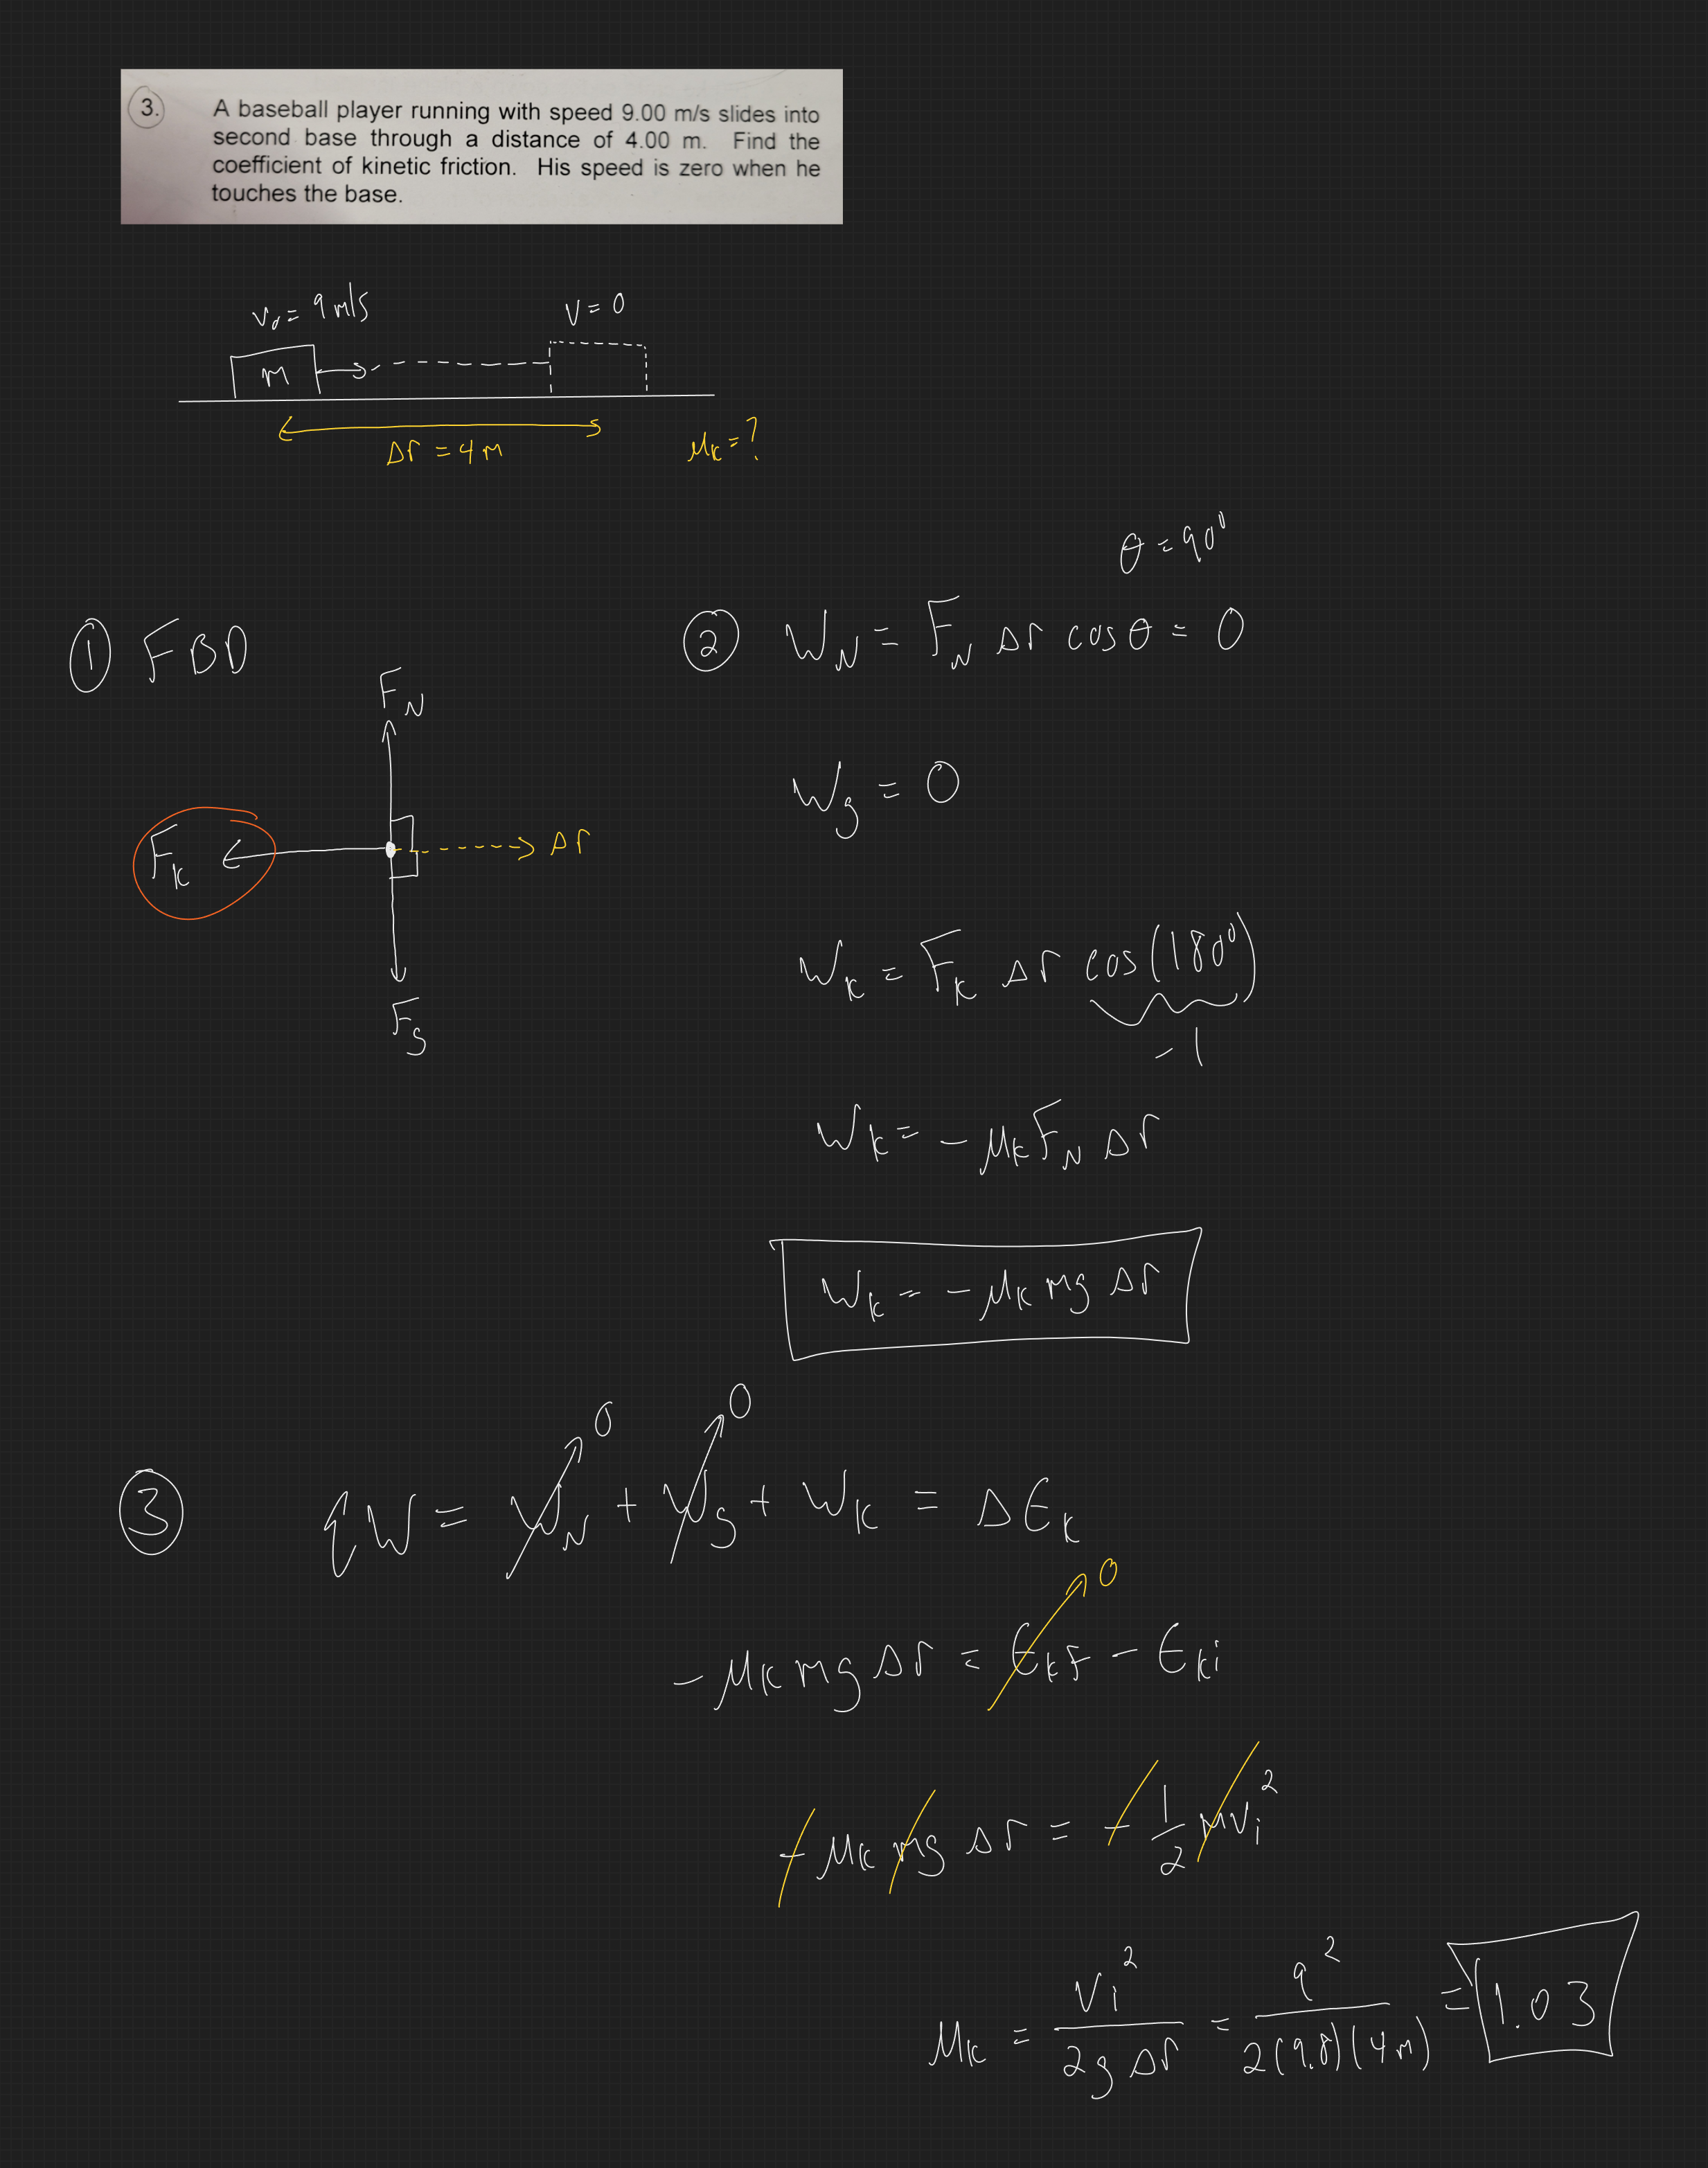 3. A baseball player running with speed 9.00 m/s slides into
second base through a distance of 4.00 m. Find the
coefficient of kinetic friction. His speed is zero when he
touches the base.
v₀ = 9 m/s V = 0
m
Δr = 4 m μₖ = ?
θ = 90°
① FBD
② W_N = F_N Δr cos θ = 0
F_N
W_g = 0
F_k Δr
W_k = F_k Δr cos(180°)
F_g
-1
W_k = - μ_k F_N Δr
W_k = - μ_k mg Δr
0 0
③ ΣW = W_N + W_g + W_k = ΔE_k
0
- μ_k mg Δr = E_kf - E_ki
- μ_k mg Δr = - 1/2 m v_i²
μ_k = v_i² / 2g Δr = 9² / 2(9.8)(4m) = 1.03